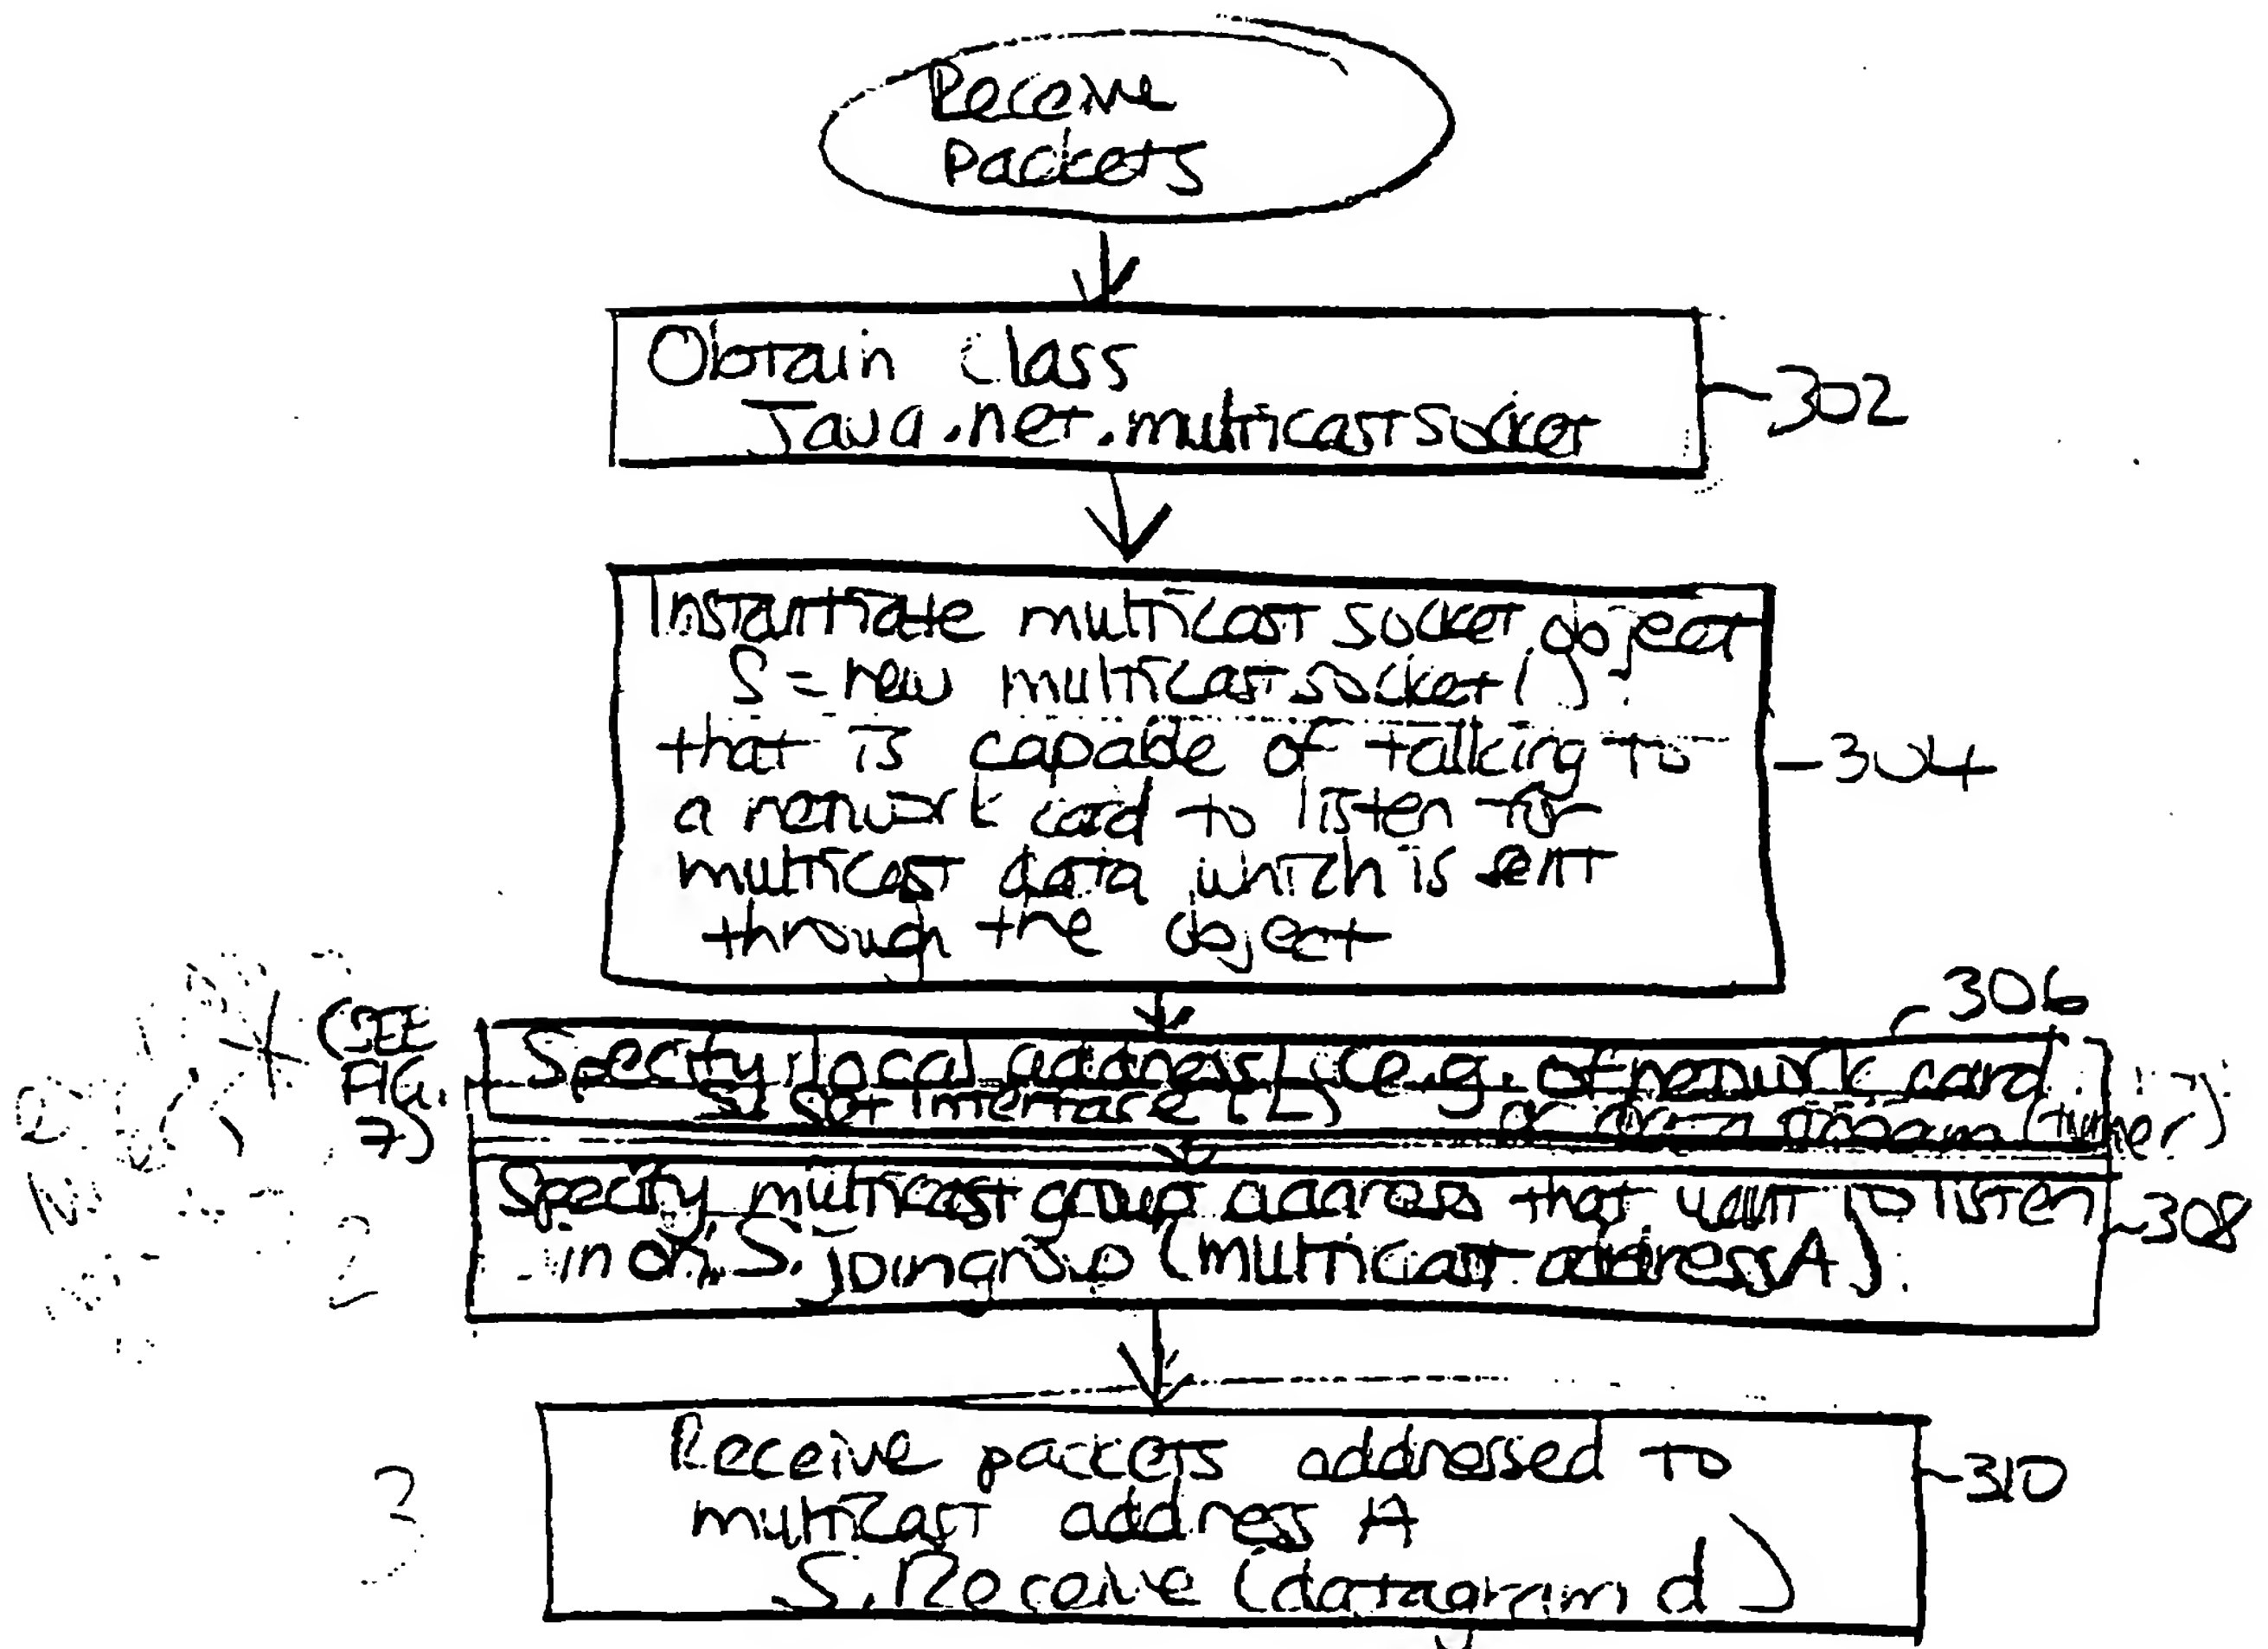 Receive
Packets
Obtain Class
Java.net.multicastSocket
302
Instantiate multicast socket object
S = new multicast socket ( )
that is capable of talking to
a network card to listen for
multicast data which is sent
through the object
304
306
* (SEE
FIG.
7)
Specify local address L (e.g. of network card
S. Set Interface (L) or of a program (tuner)
Specify multicast group address that want to listen
in on S. joingroup (multicast address A)
308
2
Receive packets addressed to
multicast address A
S. Receive (datagram d)
310
3